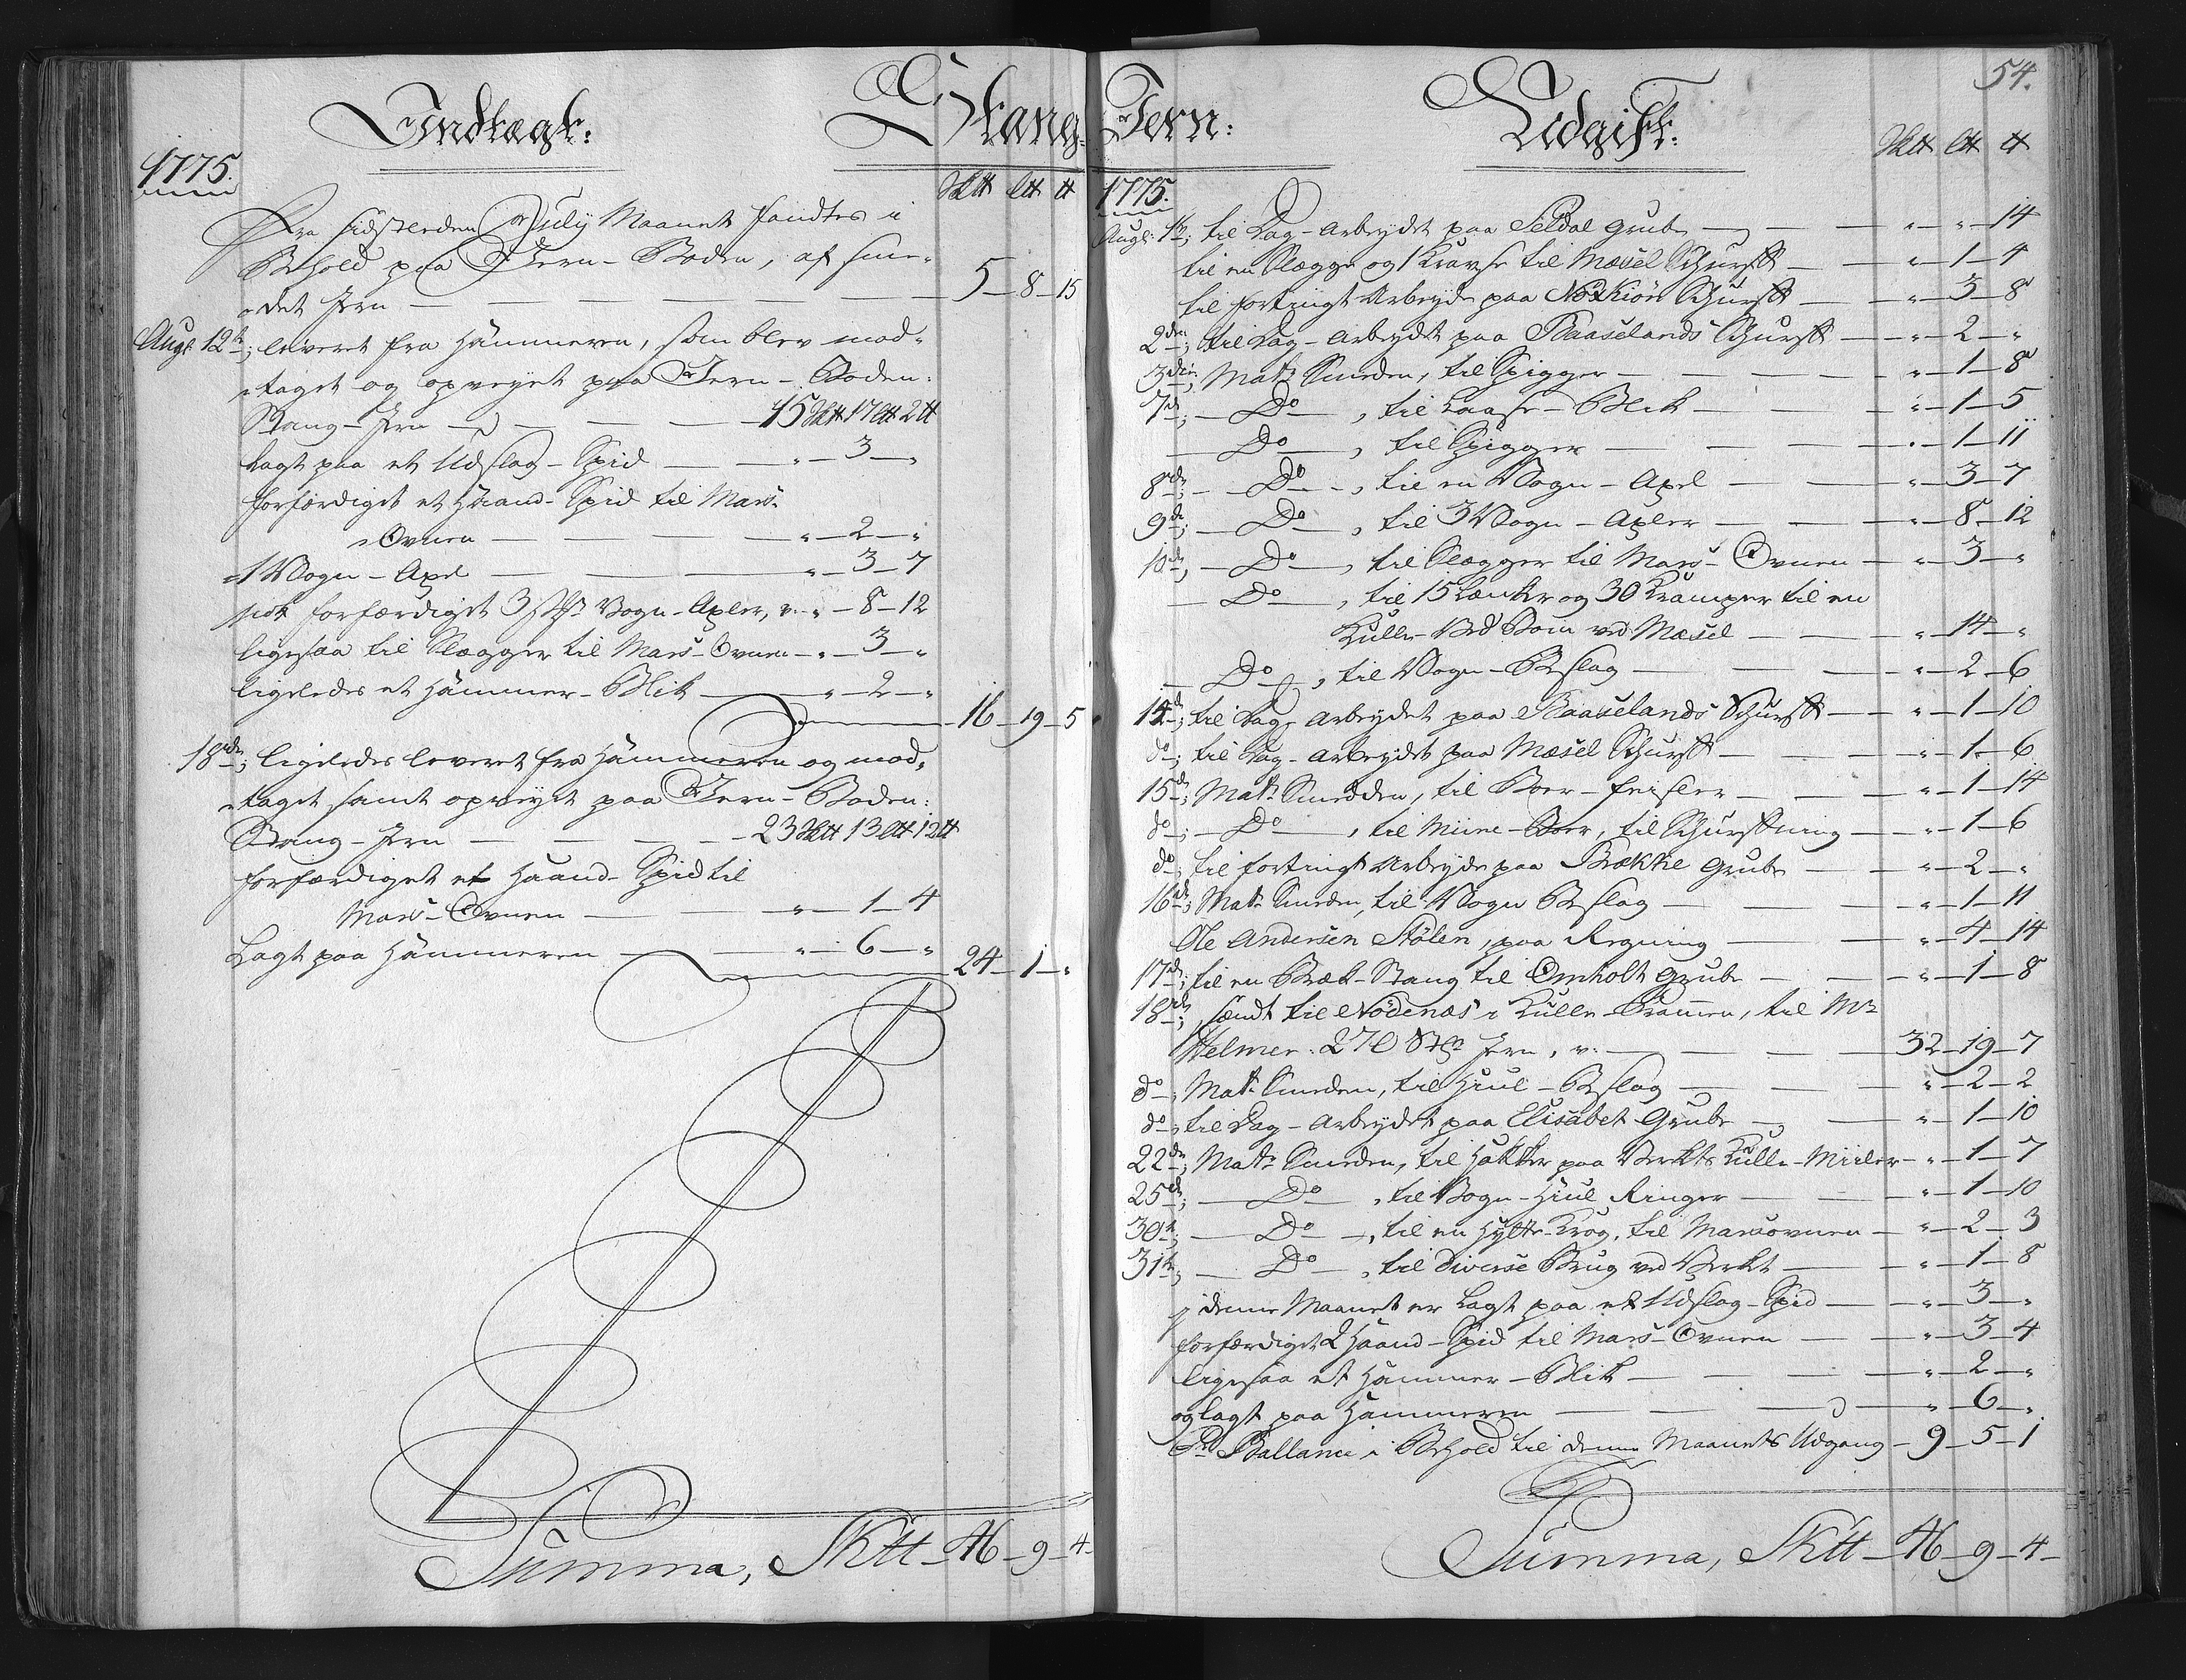 Indtægt:
Stang
1775.
Sk℔ L℔ ℔
Fra sidstleeden July Maanet fandtes i
Behold paa Jern-Boden, af sme-
det Jern — 5 — 8 — 15
Aug: 12te; leveret fra Hammeren, som blev mod-
taget og opveyet paa Jern-Boden:
Stang-Jern — 15 Sk℔ 17 L℔ 2 ℔
Lagt paa et Udslag-Spid — " — 3 — "
forfærdiget et Haand-Spid til Mars-
Ovnen — " — 2 — "
1 Vogn-Axel — " — 3 — 7
nok forfærdiget 3 St: Vogn-Axler, v: " — 8 — 12
ligesaa til Slægger til Mars-Ovnen — " — 3 — "
ligeledes et Hammer-Blik — " — 2 — "
16 — 19 — 5
18de; ligeledes leveret fra Hammeren og mod-
taget samt opveyet paa Jern-Boden:
Stang-Jern — 23 Sk℔ 13 L℔ 12 ℔
forfærdiget et Haand-Spid til
Mars-Ovnen — " — 1 — 4
Lagt paa Hammeren — " — 6 — "
24 — 1 — "
Summa, Sk℔ — 46 — 9 — 4
54.
Jern:
Udgift:
Sk℔ L℔ ℔
1775.
Aug: 1te; til Dag-Arbeydet paa Seldal Grube — " — " — 14
til en Slægge og 1 Kravse til Mæsel Schurff — " — 1 — 4
til fortingt Arbeyde paa Nørkiør Schurff — " — 3 — 8
2den; til Dag-Arbeydet paa Baaselands Schurff — " — 2 — "
3die; Mats Smeden, til Spigger — " — 1 — 8
7de; — Do — , til Laase-Blik — " — 1 — 5
— Do — , til Spigger — " — 1 — 11
8de; — Do — , til en Vogn-Axel — " — 3 — 7
9de; — Do — , til 3 Vogn-Axler — " — 8 — 12
10de; — Do — , til Slægger til Mars-Ovnen — " — 3 — "
— Do — , til 15 Lænker og 30 Kramper til en
Kulle-Ved Bom ved Mæsel — " — 14 — "
— Do — , til Vogn-Beslag — " — 2 — 6
14de; til Dag-Arbeydet paa Baaselands Schurff — " — 1 — 10
do; til Dag-Arbeydet paa Mæsel Schurff — " — 1 — 6
15de; Mats Smedden, til Boer-Feisler — " — 1 — 14
do; — Do — , til Mine-Boer, til Schurffning — " — 1 — 6
do; til fortingt Arbeyde paa Brække Grube — " — 2 — "
16de; Mats Smeden, til Vogn Beslag — " — 1 — 11
Ole Andersen Stølen, paa Regning — " — 4 — 14
17de; til en Bræk-Stang til Omholt Grube — " — 1 — 8
18de; sendt til Nødenæs i Kulle-Prammen, til Mr
Helmer: 270 St: Jern, v: — 32 — 19 — 7
do; Mats Smeden, til Hiul-Beslag — " — 2 — 2
do; til Dag-Arbeydet paa Elisabet Grube — " — 1 — 10
22de; Mats Smeden, til Hakker paa Verkts Kulle-Miiler — " — 1 — 7
25de; — Do — , til Vogn-Hiul Ringer — " — 1 — 10
30te; — Do — , til en Hytte-Krog, til Marsovnen — " — 2 — 3
31te; — Do — , til diverse Brug ved Verket — " — 1 — 8
i denne Maanet er Lagt paa et Udslag-Spid — " — 3 — "
forfærdiget 2 Haand-Spid til Mars-Ovnen — " — 3 — 4
ligesaa et Hammer-Blik — " — 2 — "
og lagt paa Hammeren — " — 6 — "
Pr Ballance i Behold til denne Maanets Udgang — 9 — 5 — 1
Summa, Sk℔ — 46 — 9 — 4 —